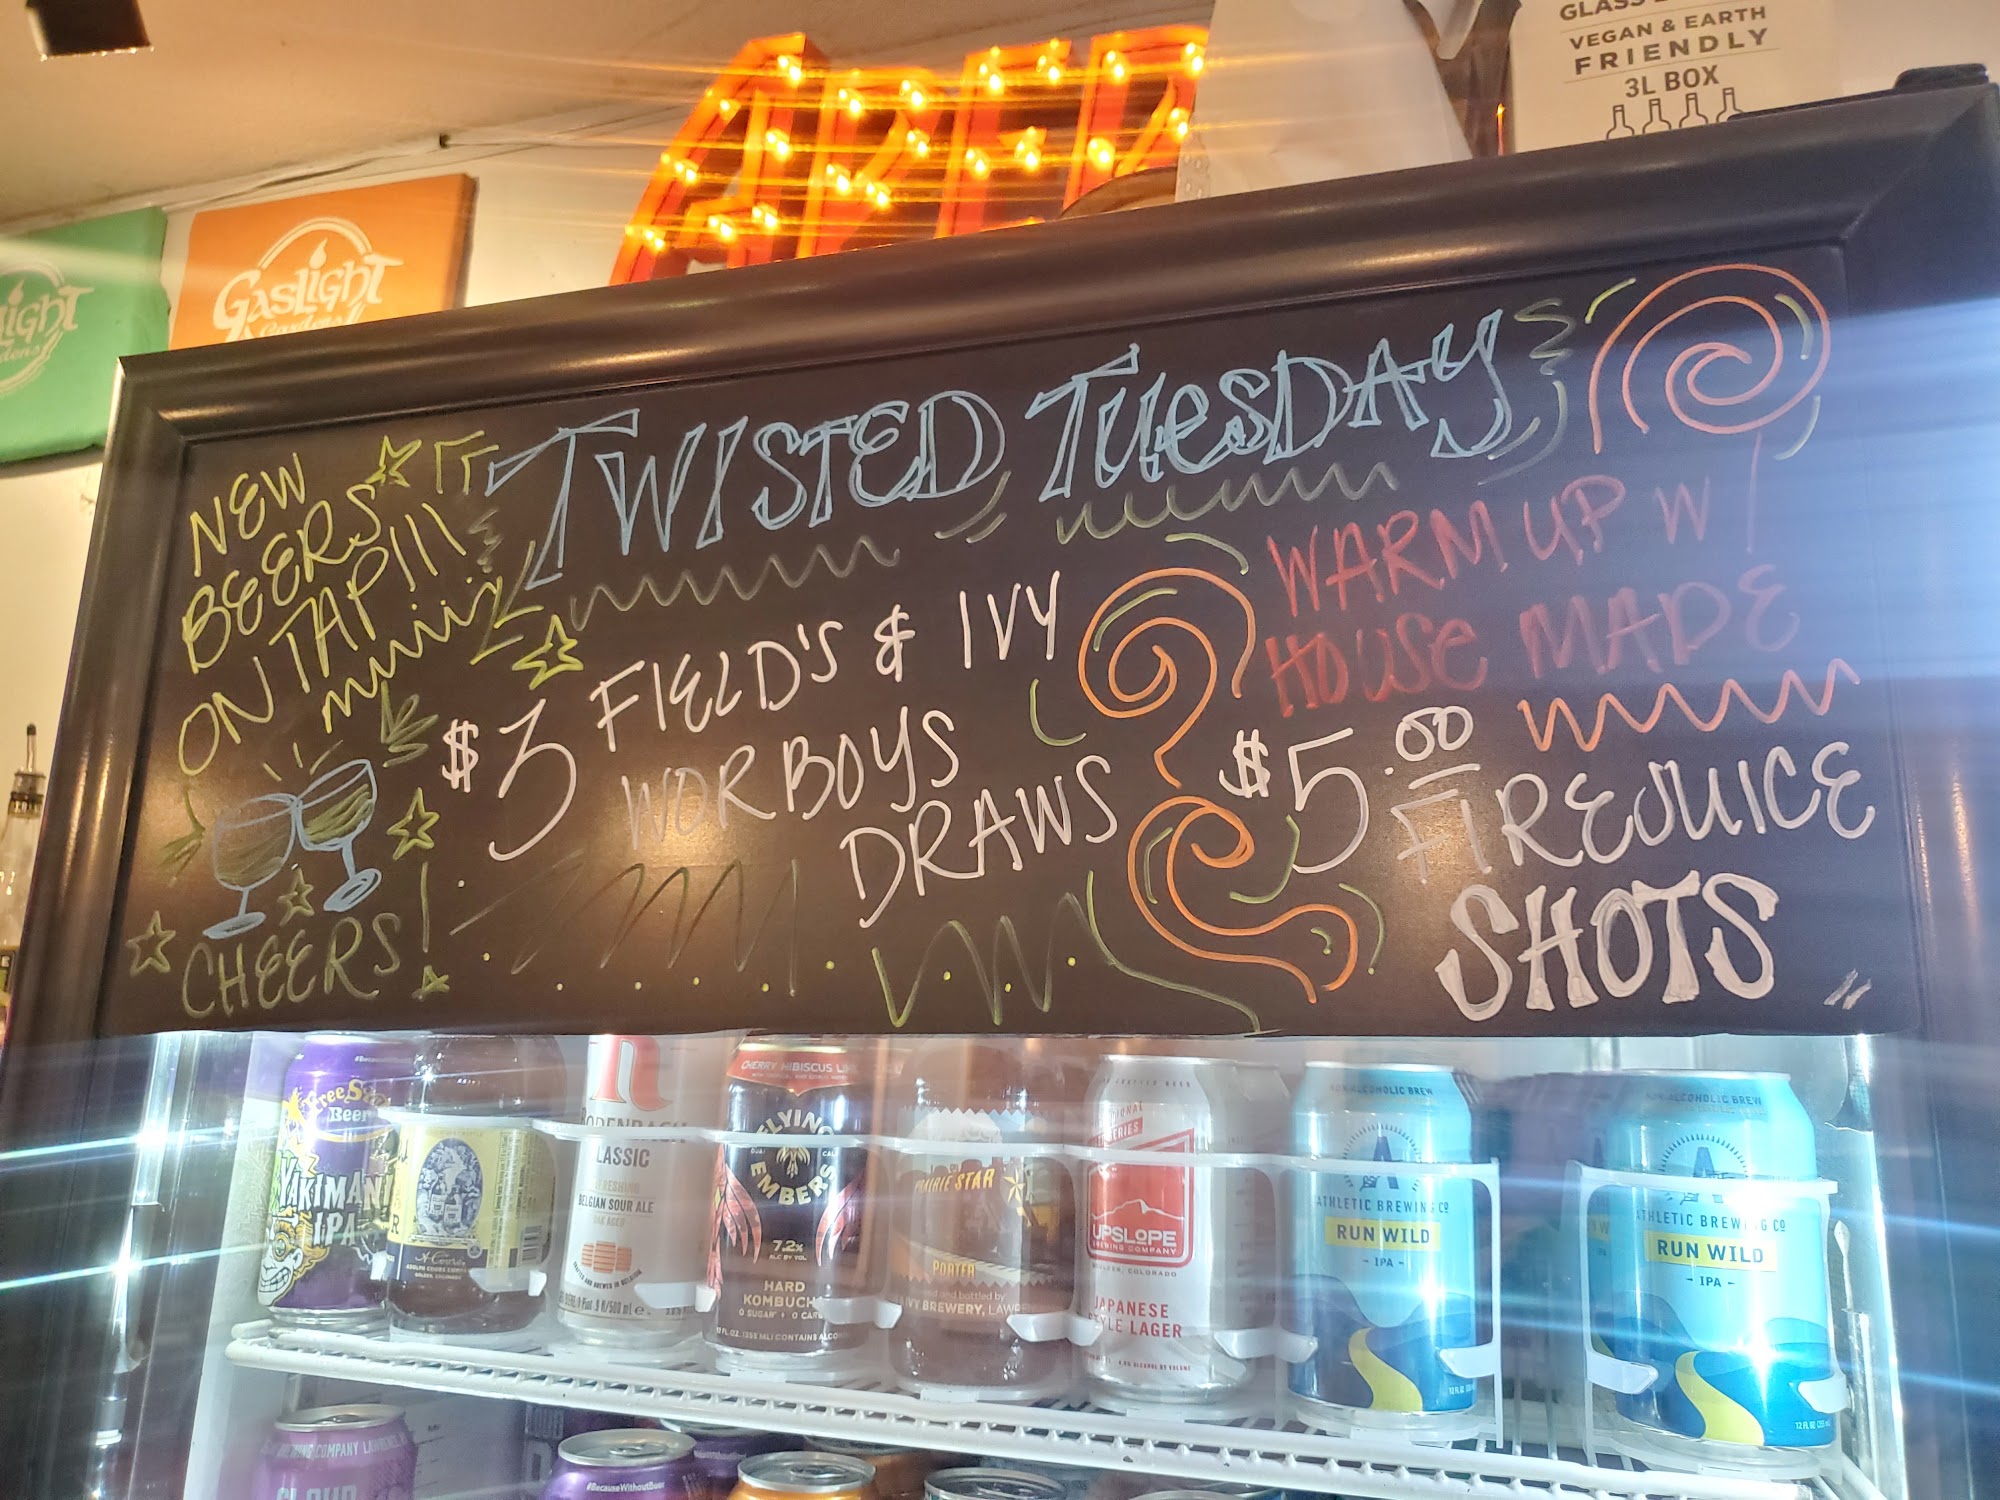 GLASS
VEGAN & EARTH
FRIENDLY
3L BOX
GASLIGHT
Gardens
NEW
BEERS
ON TAP!!!
CHEERS!
TWISTED TUESDAY
$3 FIELD'S & IVY
WORBOYS
DRAWS
WARM UP W/
HOUSE MADE
$5.00 FIREJUICE
SHOTS
Free State
Beer
YAKIMANI
IPA
RODENBACH
CLASSIC
REFRESHING
BELGIAN SOUR ALE
OAK AGED
CHERRY HIBISCUS
FLYING
EMBERS
7.2%
ALC BY VOL
HARD
KOMBUCHA
0 SUGAR
PRAIRIE STAR
PORTER
and bottled by
IVY BREWERY,
UPSLOPE
BREWING COMPANY
BOULDER, COLORADO
JAPANESE
STYLE LAGER
NON-ALCOHOLIC BREW
ATHLETIC BREWING CO
RUN WILD
- IPA -
NON-ALCOHOLIC BREW
ATHLETIC BREWING CO
RUN WILD
- IPA -
12 FL OZ
CLOUD
#BecauseWithoutBeer